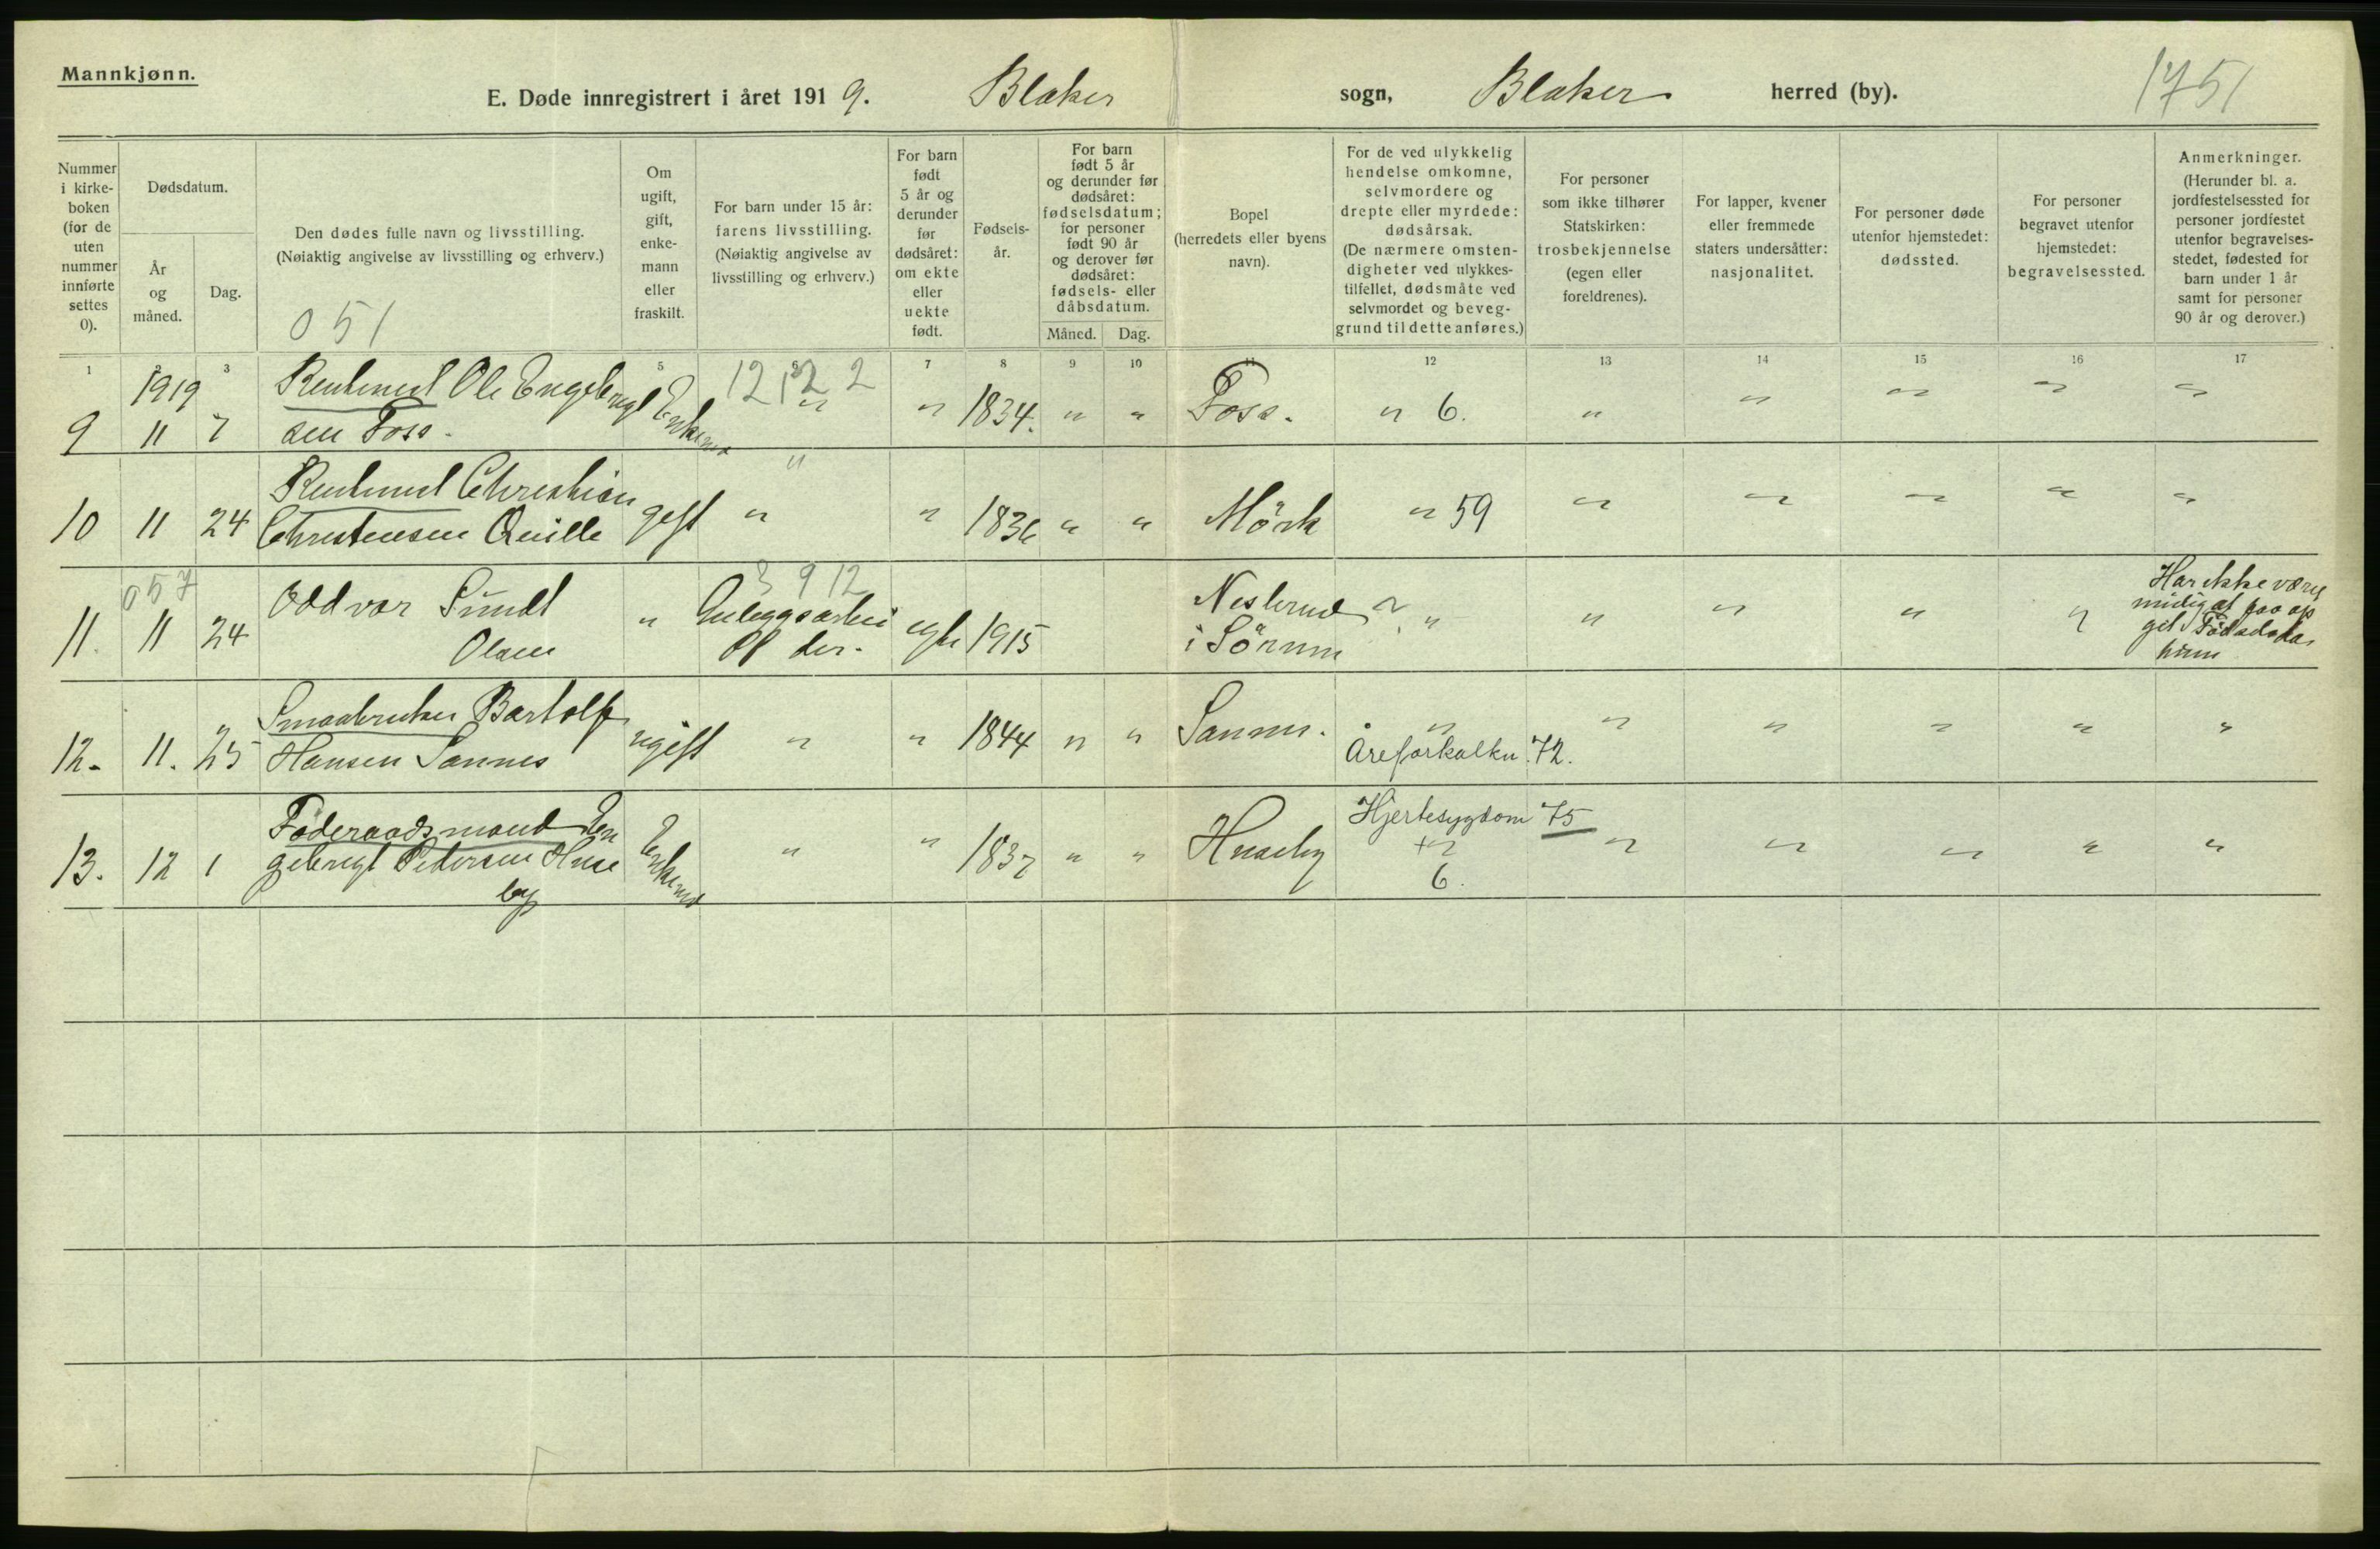 Mannkjønn.
E. Døde innregistrert i året 1919. Blaker sogn, Blaker herred (by). 1751
Nummer i kirke-boken (for de uten nummer innførte settes 0).
Dødsdatum.
År og måned.
Dag.
Den dødes fulle navn og livsstilling.
(Nøiaktig angivelse av livsstilling og erhverv.)
051
Om ugift, gift, enke-mann eller fraskilt.
For barn under 15 år: farens livsstilling.
(Nøiaktig angivelse av livsstilling og erhverv.)
For barn født 5 år og derunder før dødsåret: om ekte eller uekte født.
Fødsels-år.
For barn født 5 år og derunder før dødsåret: fødselsdatum; for personer født 90 år og derover før dødsåret: fødsels- eller dåbsdatum.
Måned. Dag.
Bopel (herredets eller byens navn).
For de ved ulykkelig hendelse omkomne, selvmordere og drepte eller myrdede: dødsårsak.
(De nærmere omsten-digheter ved ulykkes-tilfellet, dødsmåte ved selvmordet og beveg-grund til dette anføres.)
For personer som ikke tilhører Statskirken: trosbekjennelse (egen eller foreldrenes).
For lapper, kvener eller fremmede staters undersåtter: nasjonalitet.
For personer døde utenfor hjemstedet: dødssted.
For personer begravet utenfor hjemstedet: begravelsessted.
Anmerkninger.
(Herunder bl. a. jordfestelsessted for personer jordfestet utenfor begravelses-stedet, fødested for barn under 1 år samt for personer 90 år og derover.)
1 2 3 5 7 8 9 10 11 12 13 14 15 16 17
1919 Ole Engebregt 12 12 2
9 11 7 sen Foss. Enkem " " 1834. " " Foss. " 6. " " " " "
Christian "
10 11 24 Christensen Quille gift " " 1836 " " Mörk " 59 " " " " "
057 3 9 12
11. 11 24 Oddvar Sundt Olsen " egte 1915 Neslerud i Sörum " " " " " " Har ikke været
mulig at faa op
git Födselsda
tum
Smaabruker Bartolf
12. 11. 25 Hansen Sannes ugift " " 1844 " " Sannes. " " " " " "
Åreforkalkn. 72.
Föderaadsmand En Hjertesygdom 75
13. 12 1 gebregt Pedersen Huse by Enkem " " 1837 " " Huseby + " " " " " "
6.